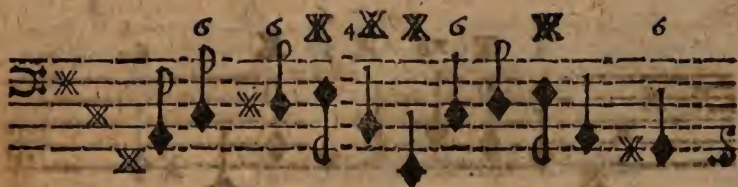 6 6 4 6 6